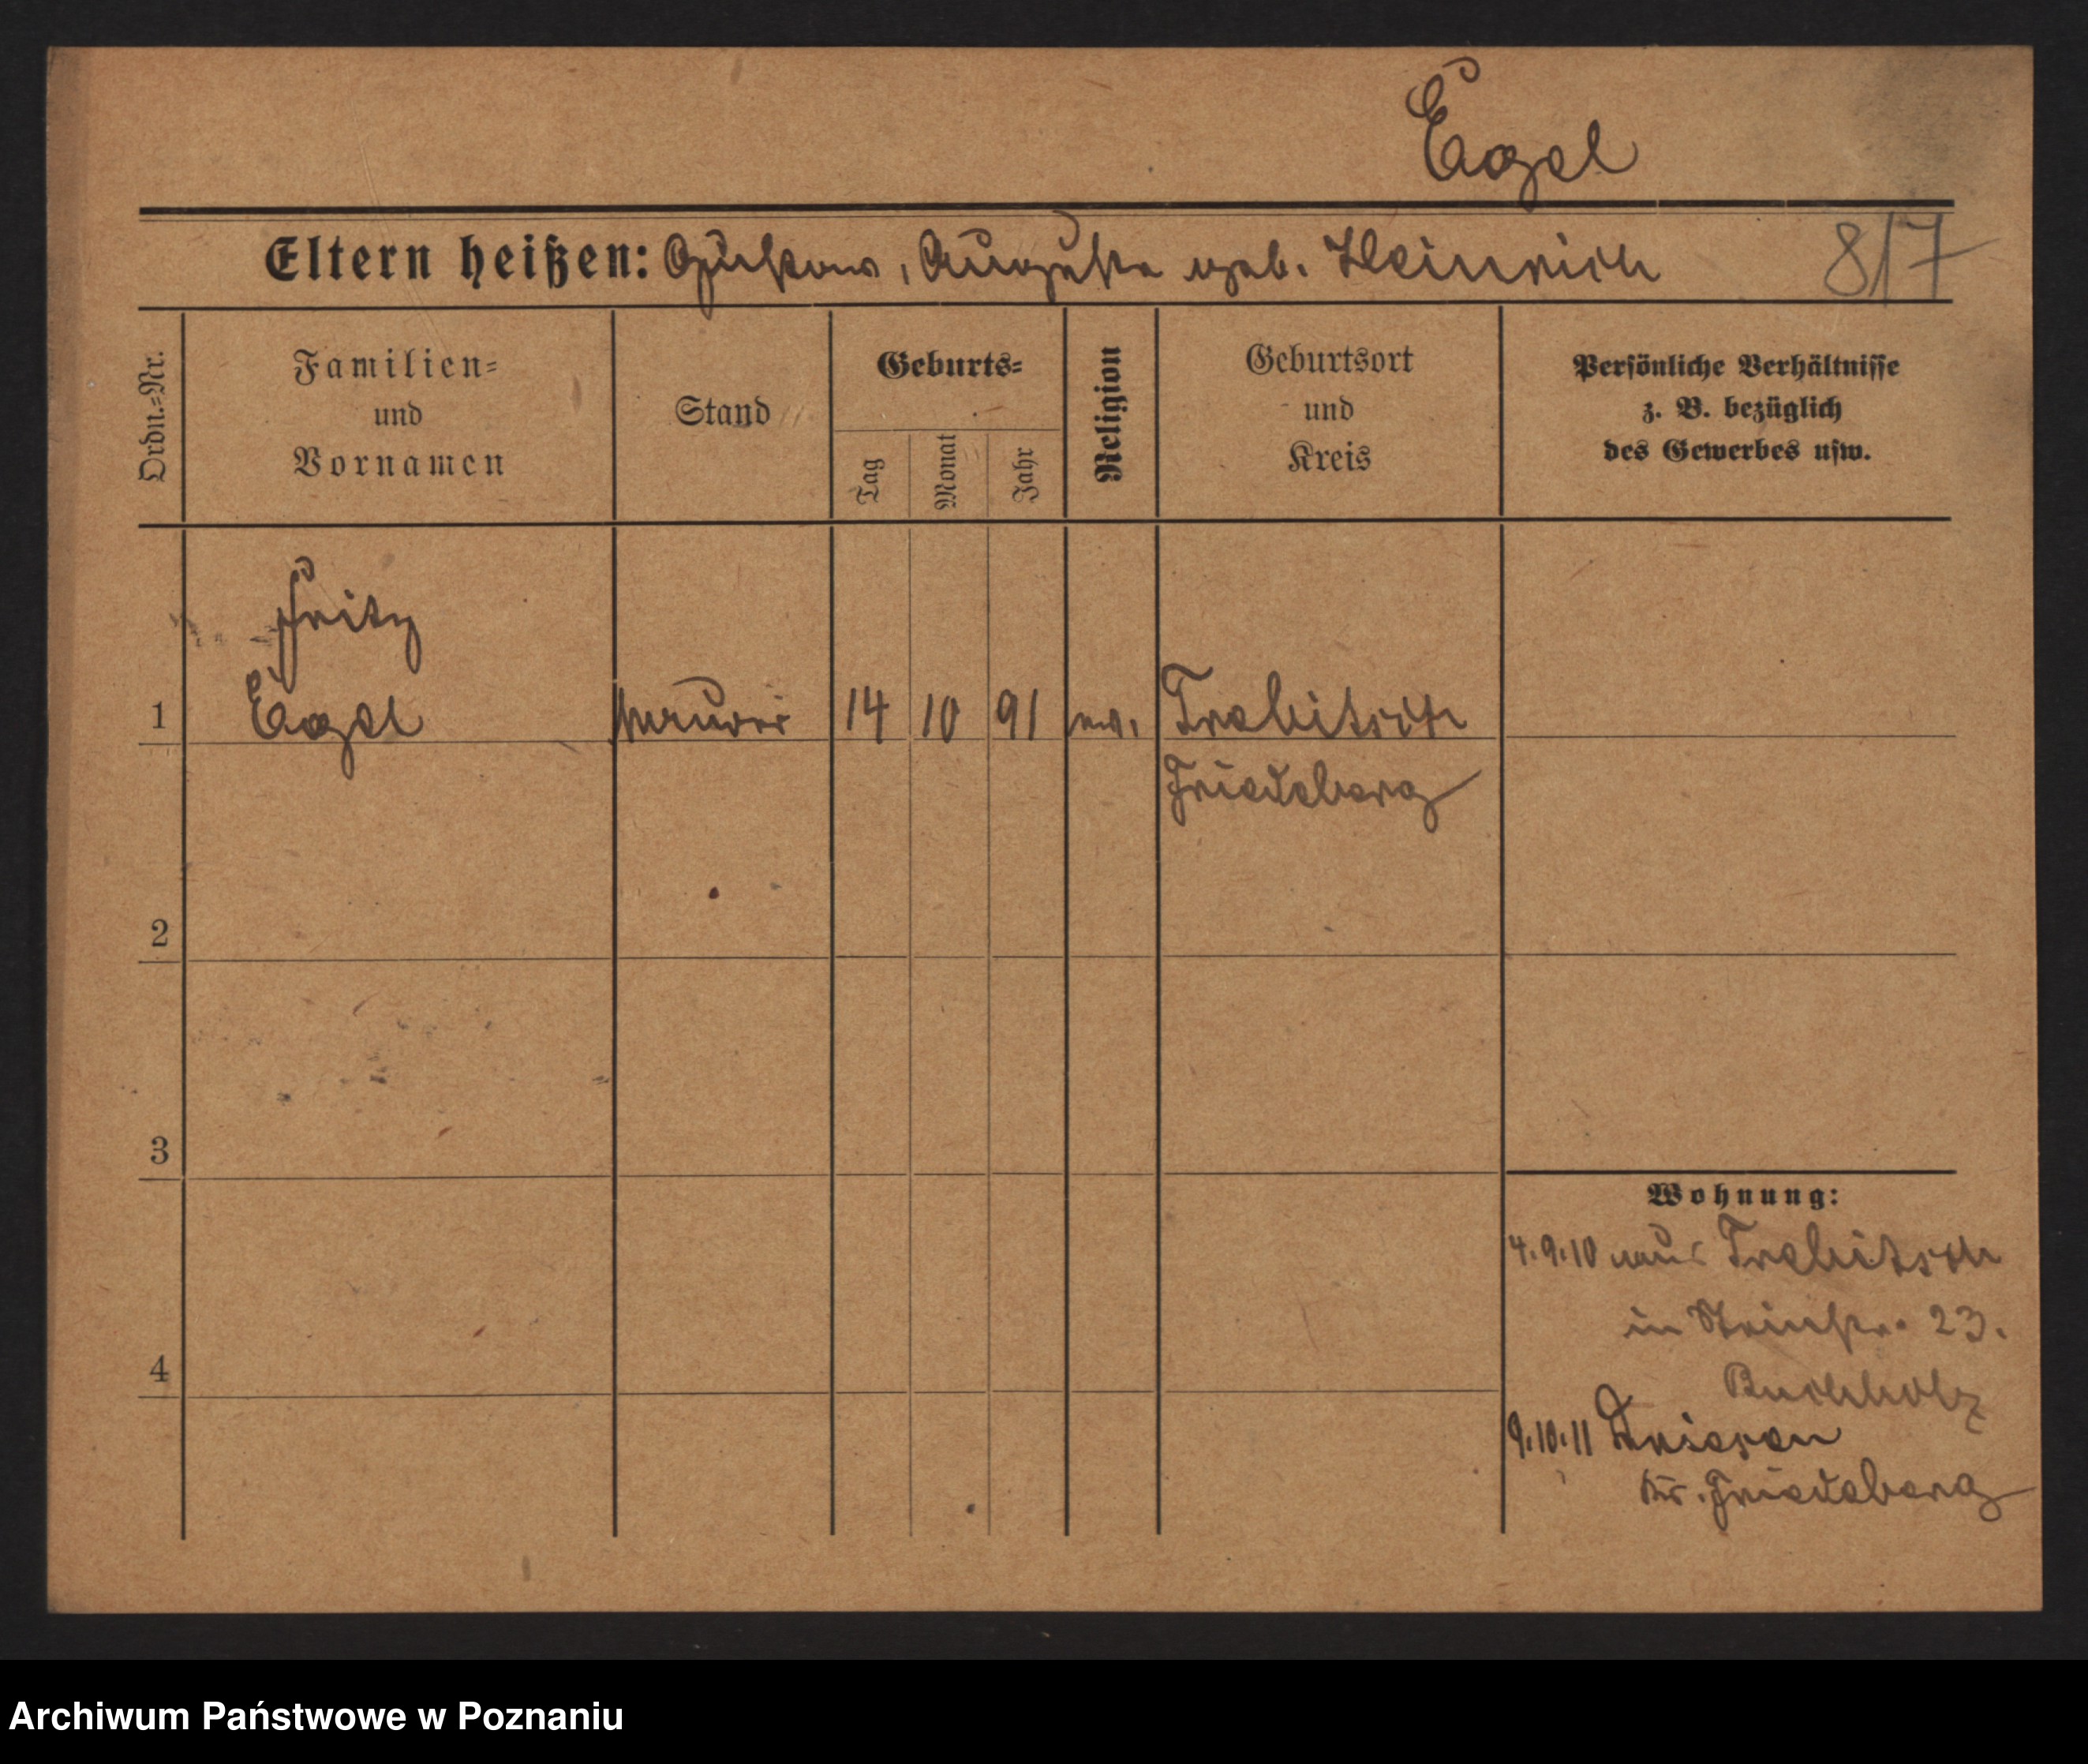 Egel
Eltern heißen: Gustav, Auguste geb. Heinrich 8/7
Ordn.=Nr.
Familien=
und
Vornamen
Stand
Geburts=
Tag
Monat
Jahr
Religion
Geburtsort
und
Kreis
Persönliche Verhältnisse
z. B. bezüglich
des Gewerbes usw.
Fritz
1 Egel 14 10 91 ev. Trebitsch
Friedeberg
2
3
4
Wohnung:
4.9.10 aus Trebitsch
in 23.
Buchholz
9.10.11 Driesen
Kr. Friedeberg
Archiwum Państwowe w Poznaniu